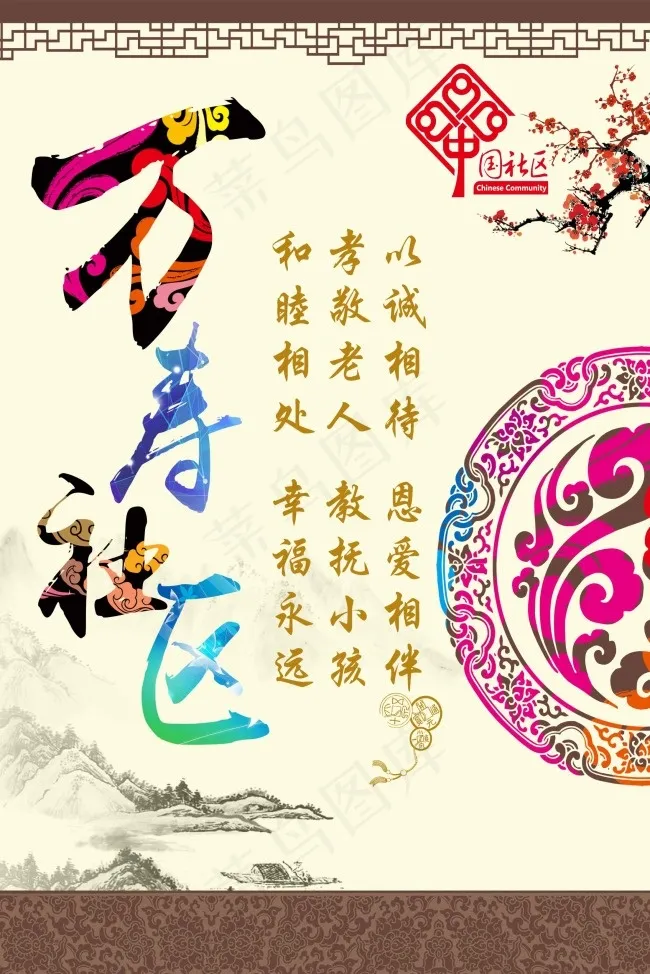 万寿社区
中国社区
Chinese Community
以诚相待 恩爱相伴
孝敬老人 教抚小孩
和睦相处 幸福永远
菜鸟图库